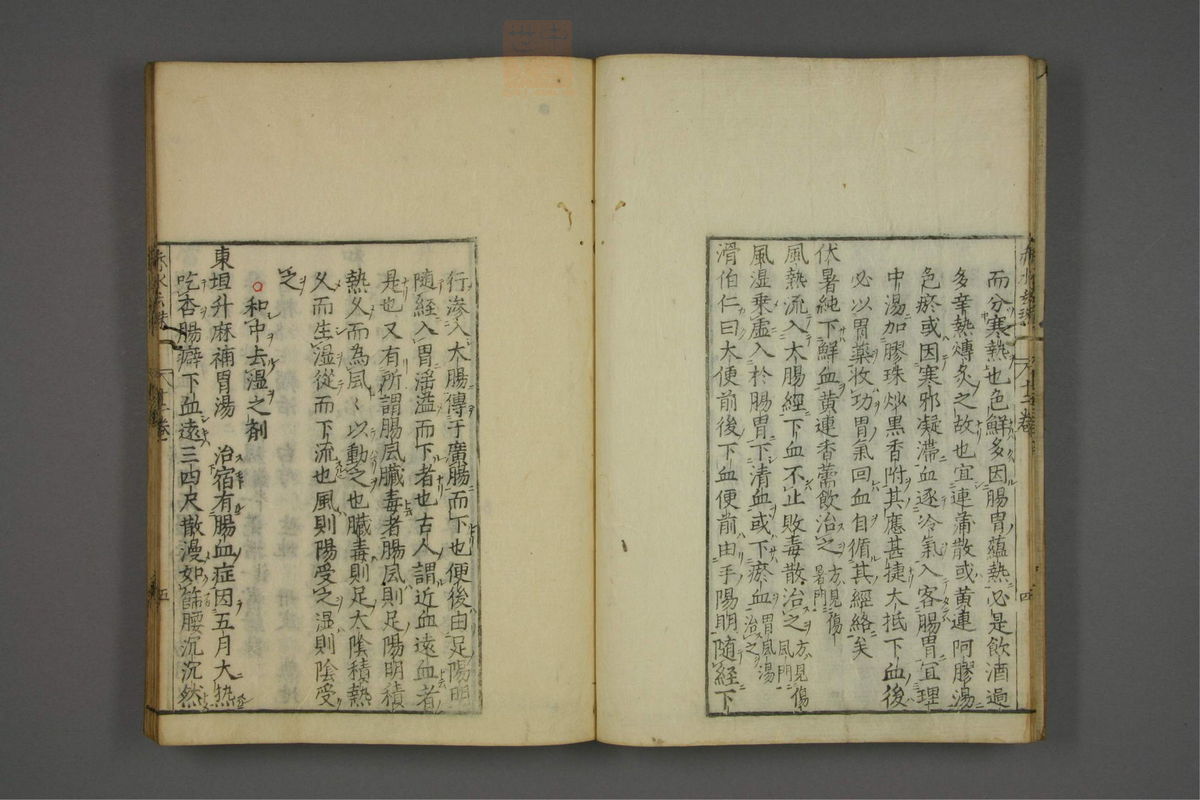 而分寒熱也色鮮多因腸胃蘊熱必是飲酒過
多辛熱煿炙之故也宜連蒲散或黄連阿膠湯
色瘀或因寒邪凝滯血逐冷氣入客腸胃宜理
中湯加膠珠炒黒香附其應甚捷大抵下血後
必以胃藥收功胃氣回血自循其經絡矣
伏暑純下鮮血黄連香薷飲治之方見傷暑門
風熱流入大腸經下血不止敗毒散治之方見傷風門
風湿乗虚入於腸胃下清血或下瘀血胃風湯治之
滑伯仁曰大便前後下血便前由手陽明随經下
行滲入大腸傳于廣腸而下也便後由足陽明
随經入胃滛溢而下者也古人謂近血遠血者
是也又有所謂腸风臓毒者腸风則足陽明積
熱久而為风〻以動之也臓毒則足太陰積熱
久而生湿從而下流也風則陽受之湿則陰受
之
和中去湿之剤
東垣升麻補胃湯　治宿有腸血症因五月大热
吃杏腸癖下血遠三四尺散漫如篩腰沉沉然
卷
四
五